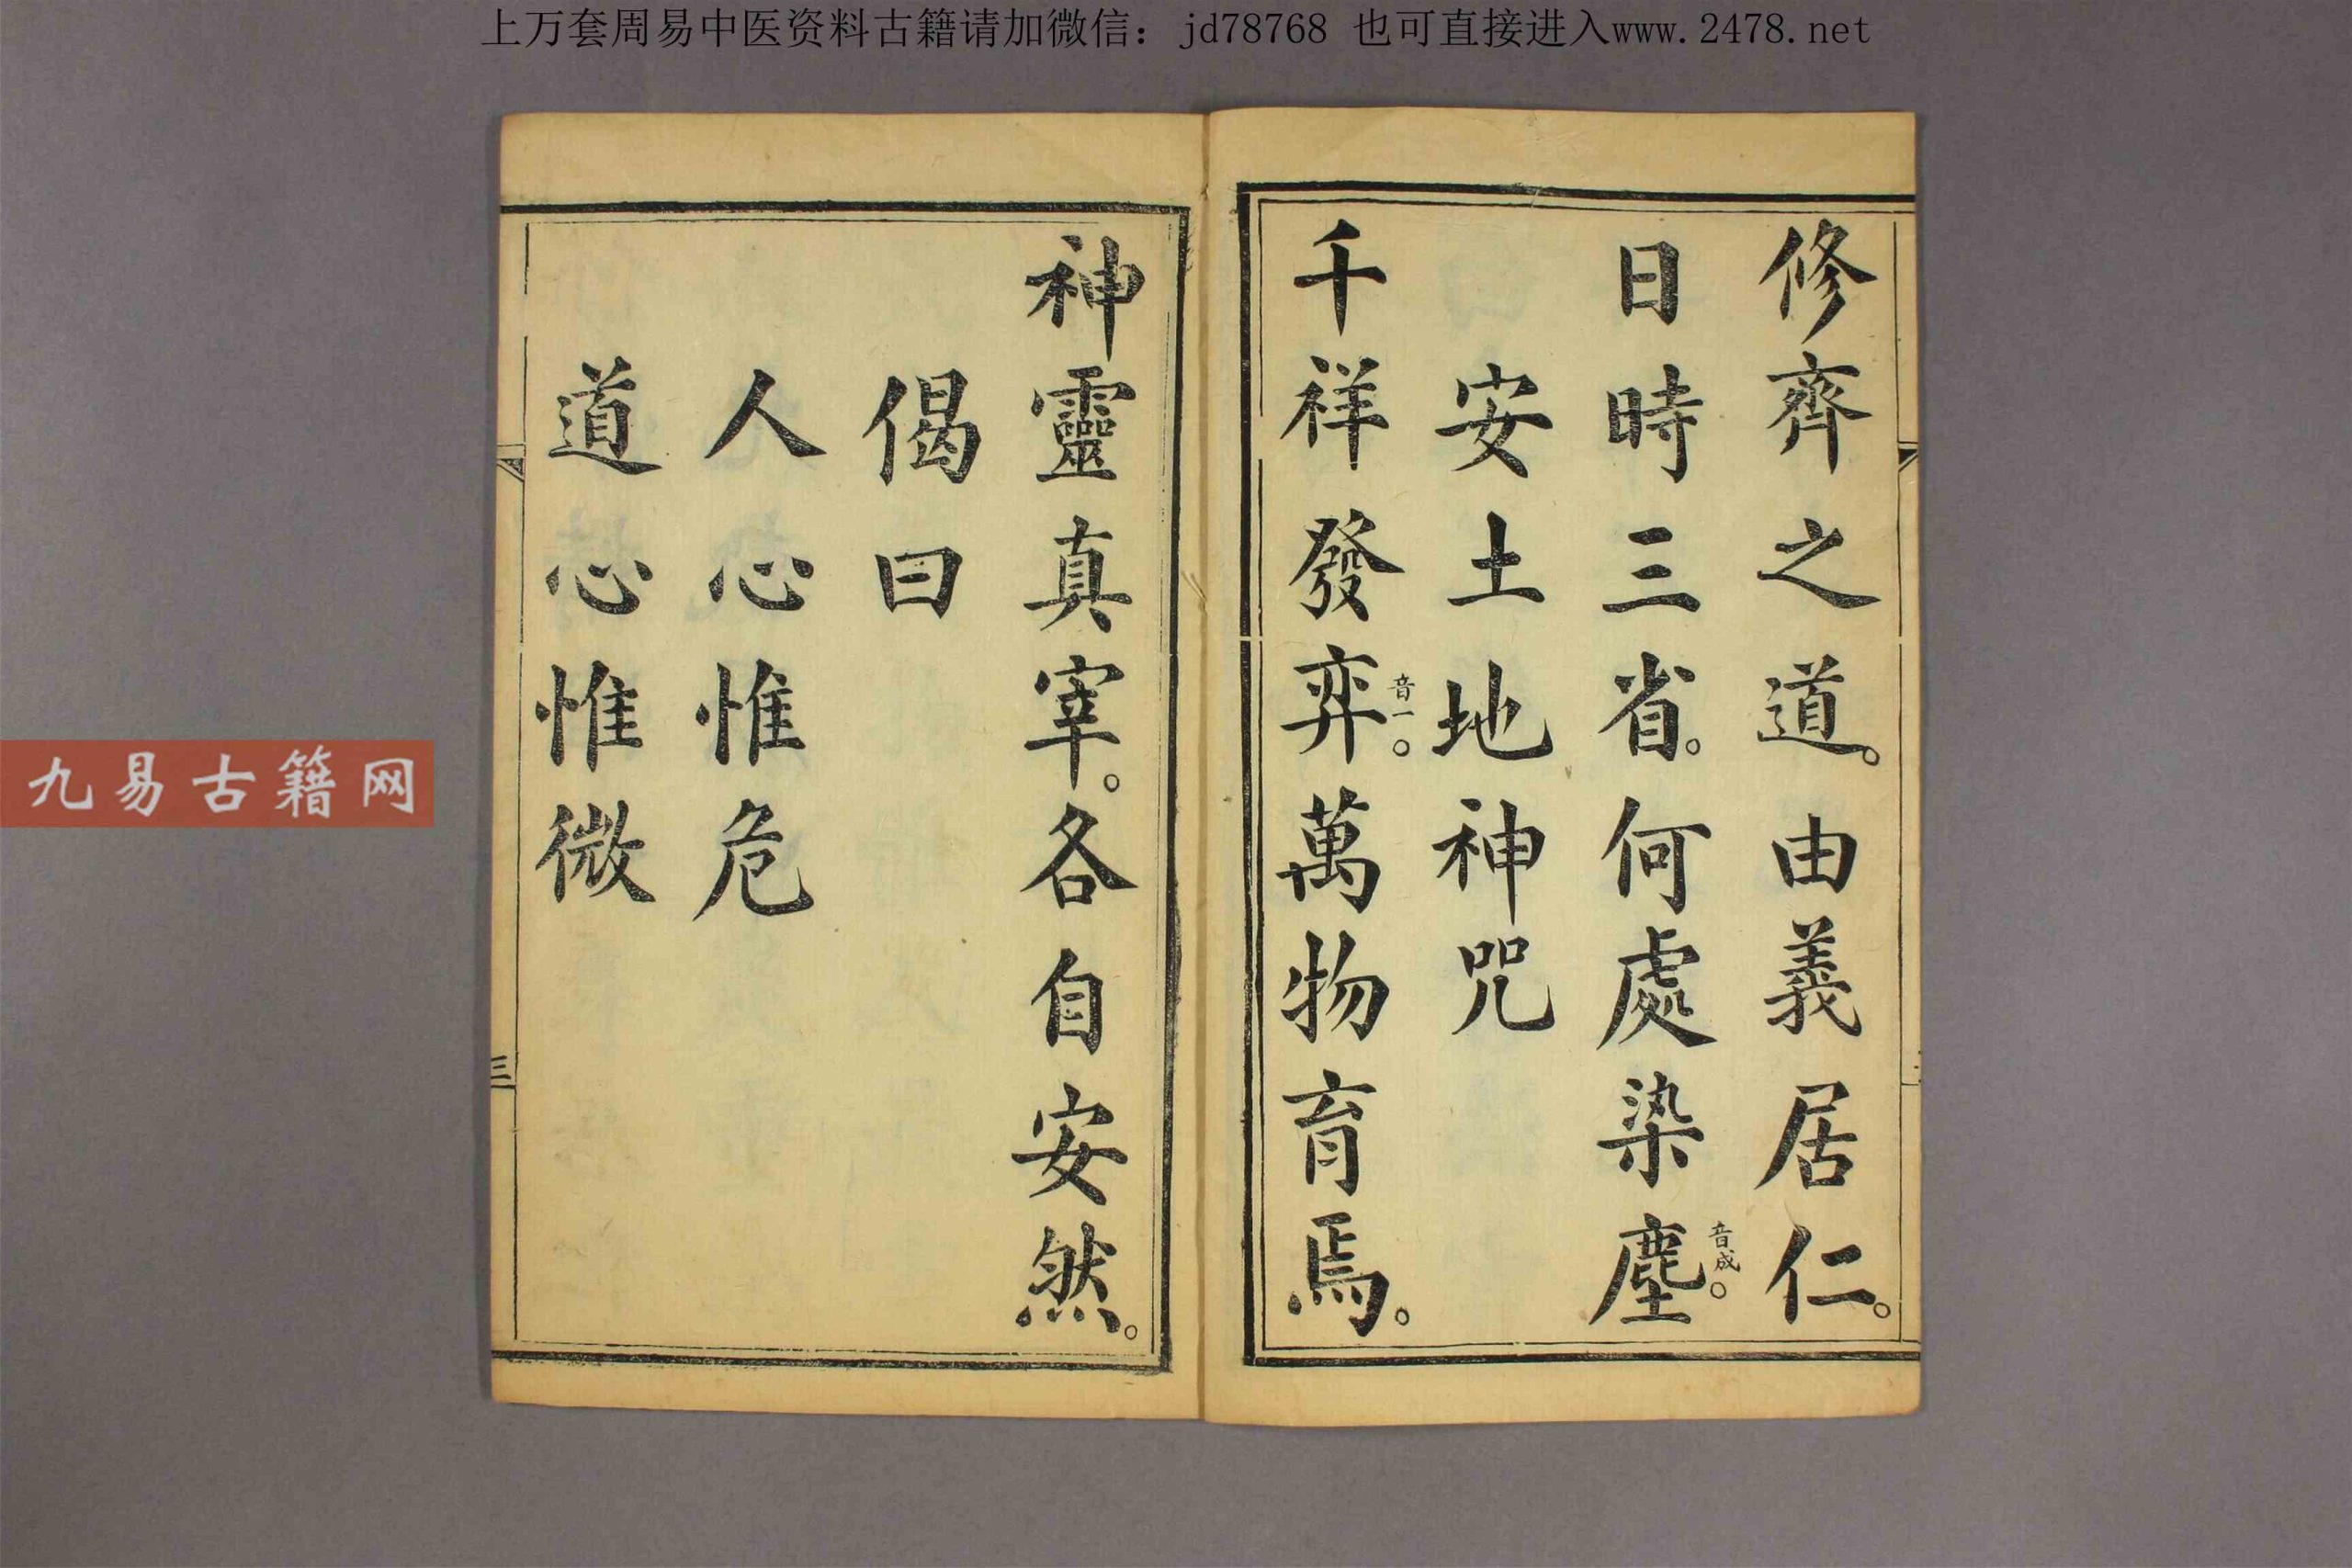 上万套周易中医资料古籍请加微信：jd78768 也可直接进入www.2478.net
修齊之道。由義居仁。
日時三省。何處染塵音成。
安土地神咒
千祥發弈音一。萬物育焉。
神靈真宰。各自安然。
偈曰
人心惟危
道心惟微
三
九易古籍网